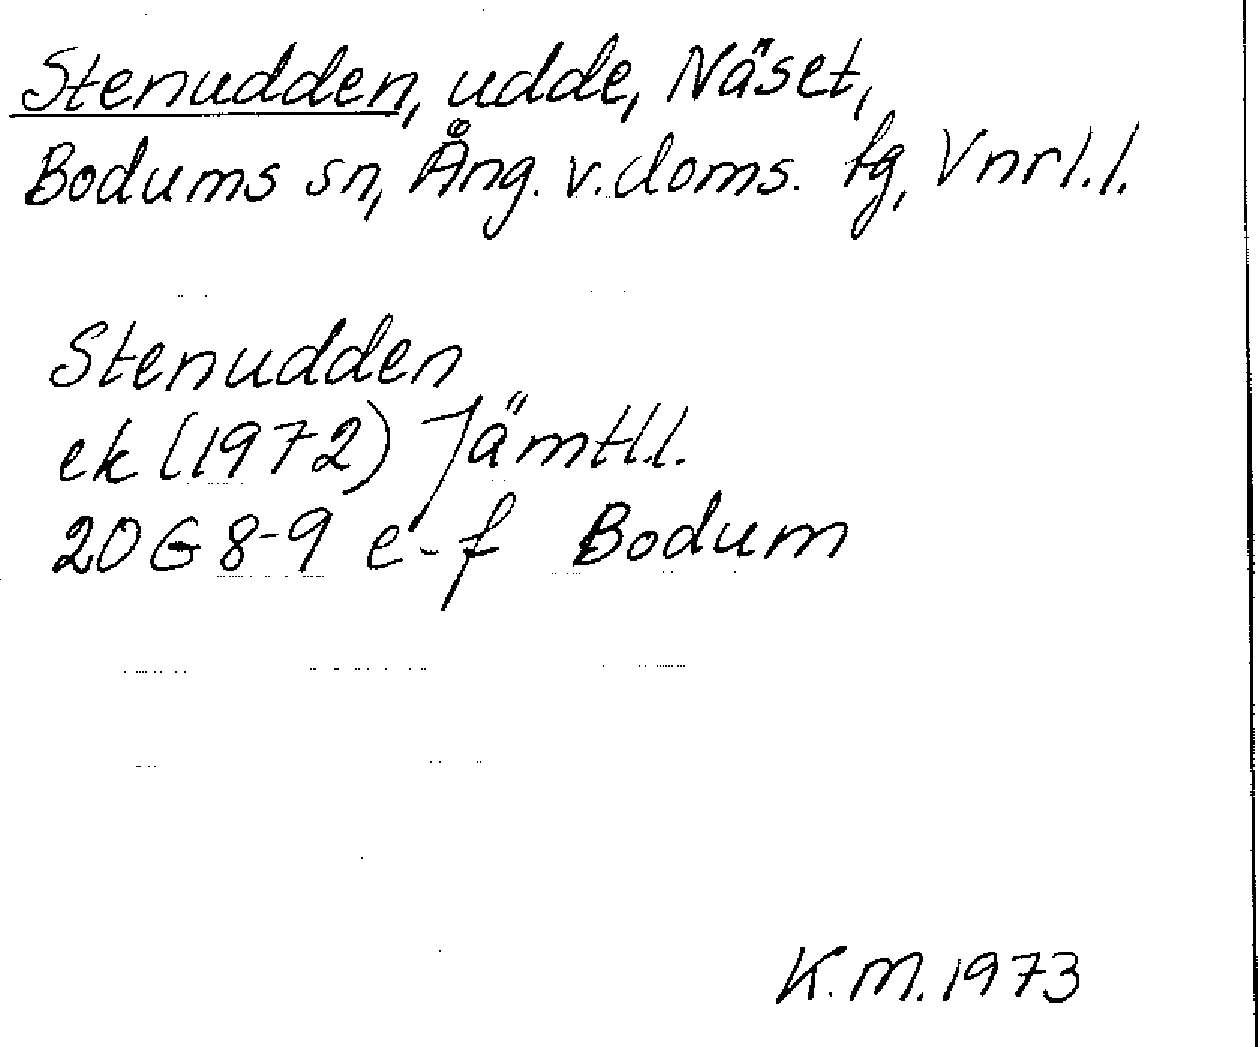 Stenudden, udde, Näset,
Bodums sn, Ång. v. doms. tg, Vnrl.l.
Stenudden
ek (1972) Jämtl.l.
20G 8-9 e-f Bodum
K.M. 1973